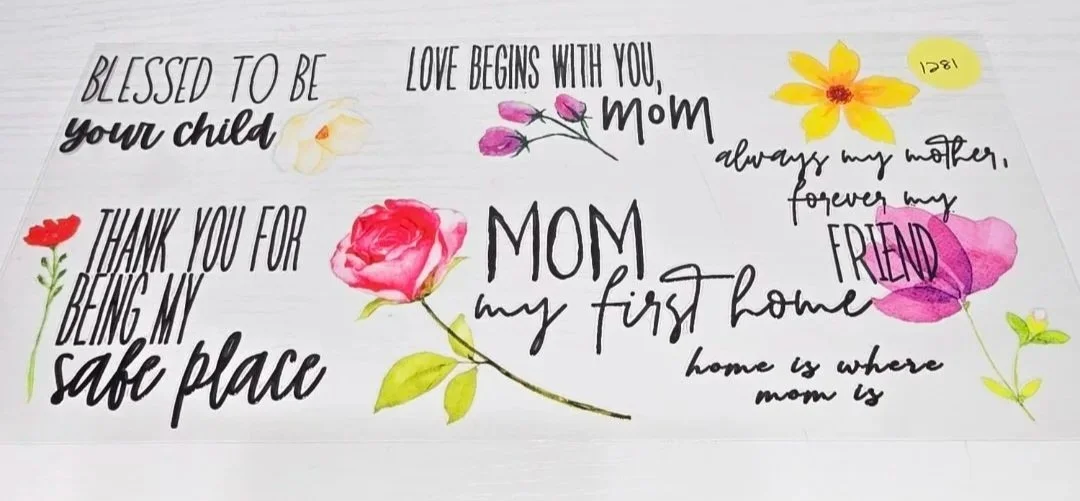 BLESSED TO BE
your child
LOVE BEGINS WITH YOU,
mom
1281
always my mother,
forever my
FRIEND
THANK YOU FOR
BEING MY
safe place
MOM
my first home
home is where
mom is